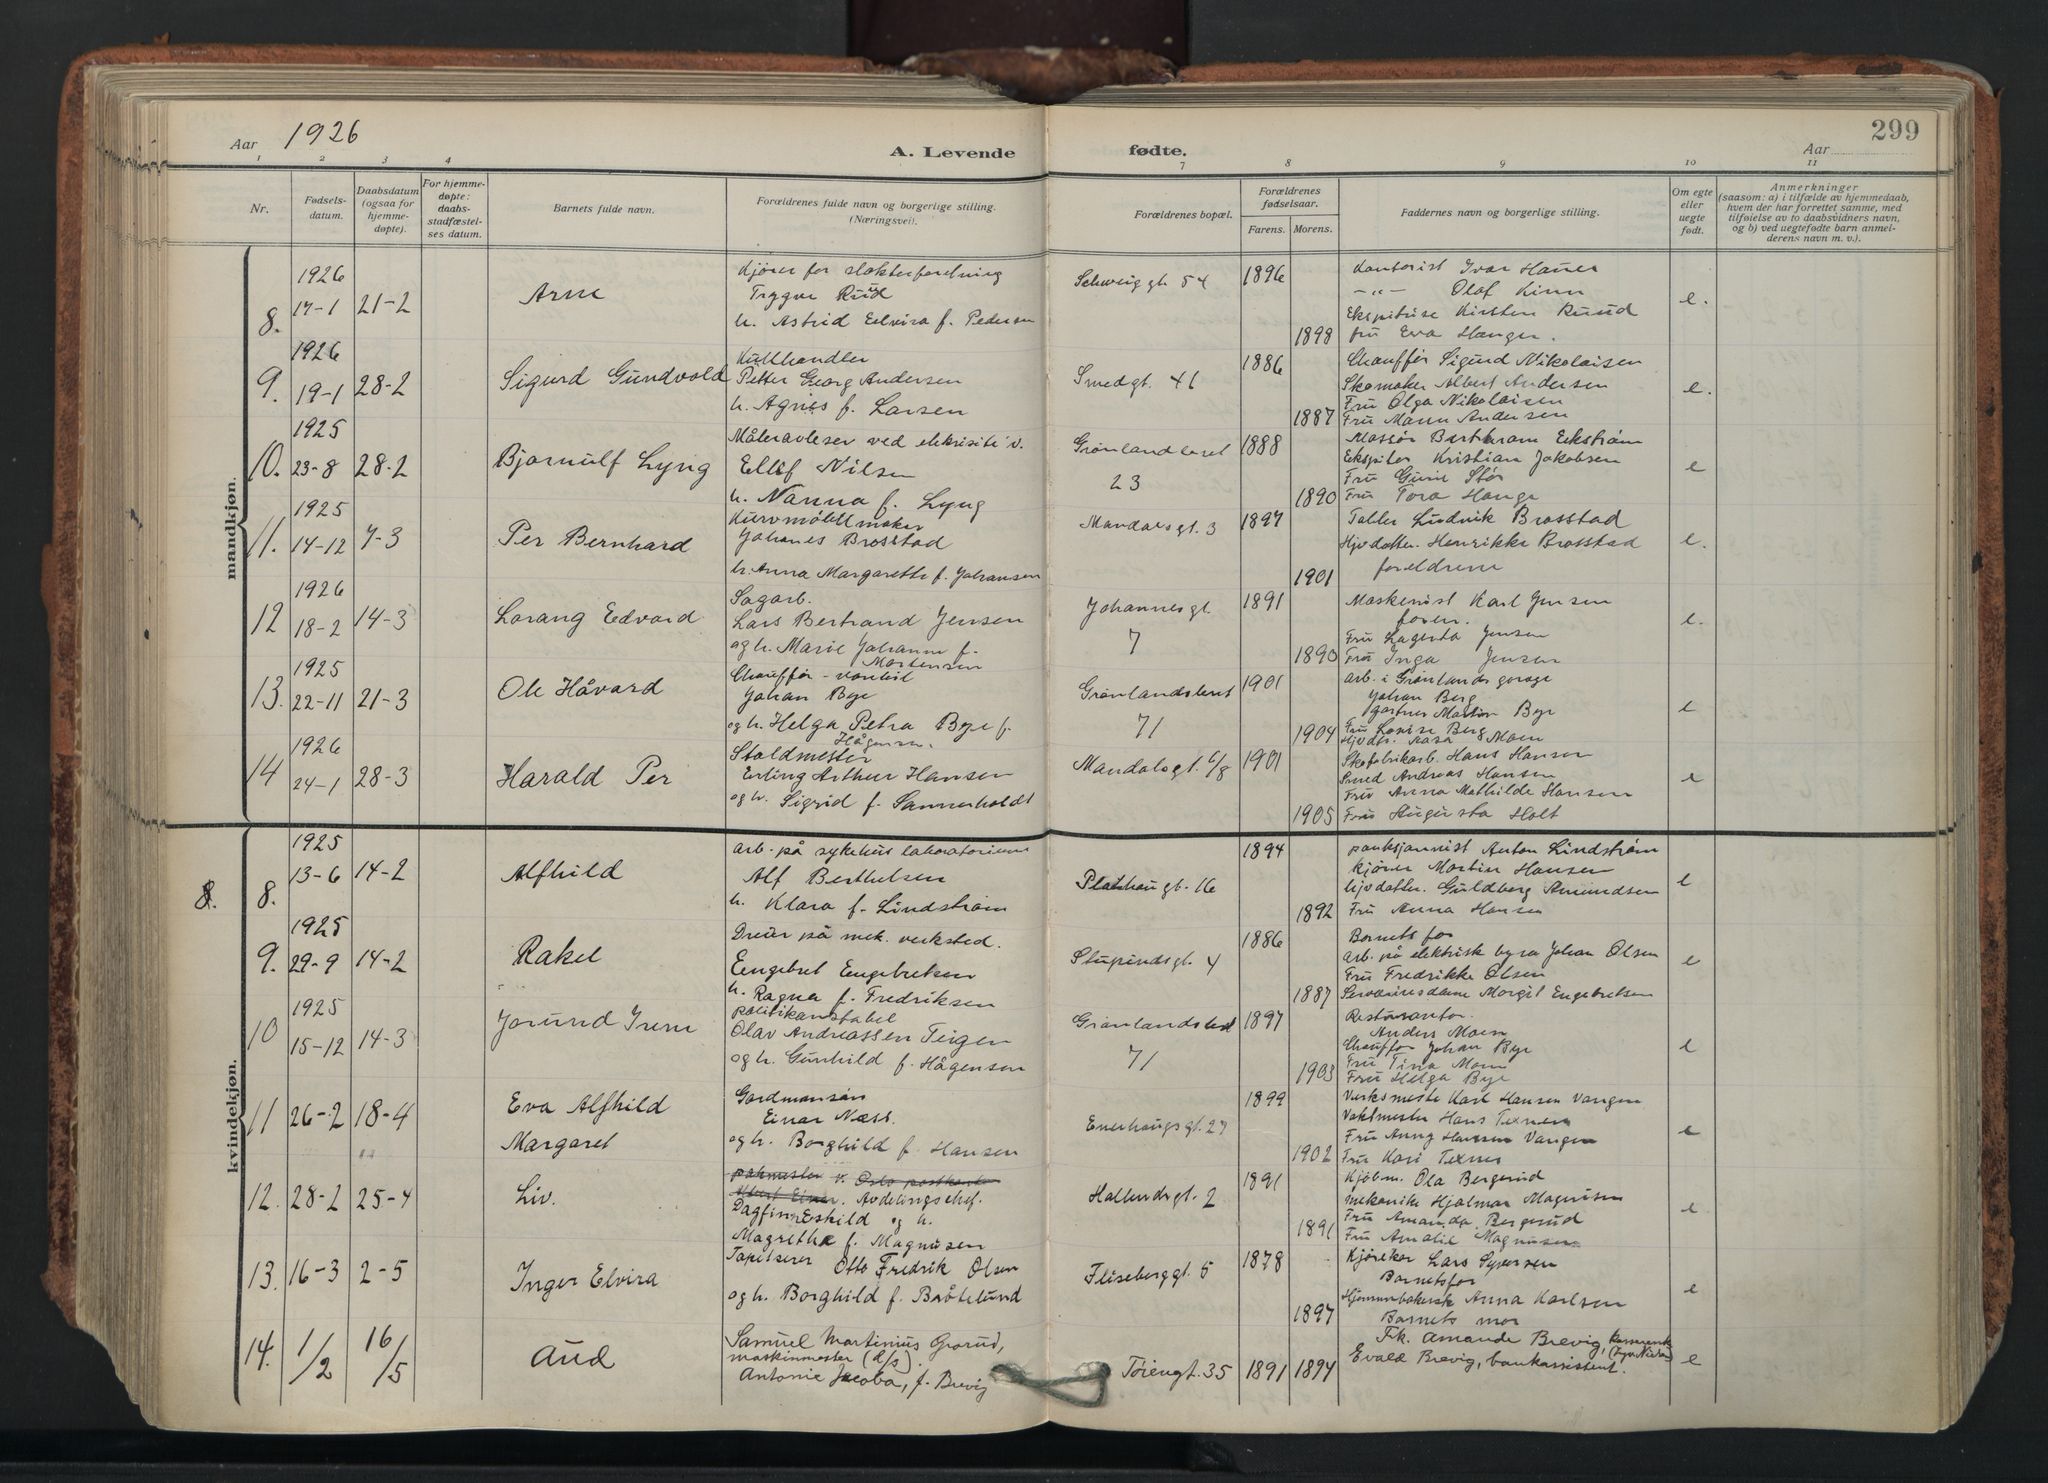 299
Aar 1926
A. Levende fødte.
Aar
1 2 3 4 7 8 9 10 11
Nr.
Fødsels-
datum.
Daabsdatum
(ogsaa for
hjemme-
døpte).
For hjemme-
døpte:
daabs-
stadfæstel-
ses datum.
Barnets fulde navn.
Forældrenes fulde navn og borgerlige stilling.
(Næringsvei).
Forældrenes bopæl.
Forældrenes
fødselsaar.
Farens. Morens.
Faddernes navn og borgerlige stilling.
Om egte
eller
uegte
født.
Anmerkninger
(saasom: a) i tilfælde av hjemmedaab,
hvem der har forrettet samme, med
tilføielse av to daabsvidners navn,
og b) ved uegtefødte barn anmel-
derens navn m. v.).
mandkjøn.
8. 1926 17-1 21-2 Arne
Kjører for slakterforetning
Trygve Ruud
h. Astrid Elvira f. Pedersen
Schweiggt. 54 1896 1898
Kontorist Ivar Hauer
-"- Olaf Kinn
Ekspitrise Kirsten Ruud
fru Eva Hanger.
e.
9. 1926 19-1 28-2 Sigurd Gundvald
Kullhandler
Petter Georg Andersen
h. Agnes f. Larsen
Smedgt. 41 1886 1887
Chauffør Sigurd Nikolaisen
Skomaker Albert Andersen
Fru Olga Nikolaisen
Fru Mann Andersen
e.
10. 1925 23-8 28-2 Bjørnulf Lyng
Måleravleser ved elekrisite v.
Ellef Nilsen
h. Nanna f. Lyng
Grønlandsleret
23 1888 1890
Massør Berthram Eckstrøm
Ekspitør Kristian Jakobsen
Fru Gurid Stør
Fru Tora Hange
e
11. 1925 14-12 7-3 Per Bernhard
Kurvmøbelmaker
Johanes Brosstad
h. Anna Margarethe f. Johansen
Mandalsgt. 3 1897 1901
Ludvik Brosstad
Hjvdatter. Henrikke Brosstad
foreldrene
e.
12 1926 18-2 14-3 Lorang Edvard
Sagarb.
Lars Bertrand Jensen
og h. Marie Johanne f.
Mortensen
Johannesgt.
7 1891 1890
Maskenist Karl Jensen
faren.
Fru Lagerta Jensen
Fru Inga Jensen
e.
13. 1925 22-11 21-3 Ole Håvard
Chauffør
Johan Bye
og h. Helga Petra Bye f.
Hågensen.
Grønlandsleret
71 1901 1904
arb. i Grønlands garage
Johan Berg
gartner Martin Bye
Fru Lovise Berg
Hjvdtr. Aasa Moen
e
14 1926 24-1 28-3 Harald Per
Staldmester
Erling Arthur Hansen
og h. Sigrid f. Sannerholdt
Mandalsgt. 6/8 1901 1905
Skofabrikarb. Hans Hansen
Smed Andreas Hansen
Fru Anna Mathilde Hansen
Fru Augusta Holt
e
kvindekjøn.
8. 8. 1925 13-6 14-2 Alfhild
arb. på sykehus laboratorium
Alf Berthelsen
h. Klara f. Lindstrøm
Platougt. 16 1894 1892
panksjonist Anton Lindstrøm
kjører Martin Hansen
hjvdatter. Guldborg Amundsen
Fru Anna Hansen
e
9. 1925 29-9 14-2 Rakel
Dreier på mek. verksted.
Eengebret Engebretsen
h. Ragna f. Fredriksen
Stupindsgt. 4 1886 1887
Barnets far
arb. på elektrisk byra Johan Olsen
Fru Fredrikke Olsen
Serveringsdame Margit Engebretsen
e
10 1925 15-12 14-3 Jorund Irene
politikonstabel
Olav Andreassen Teigen
og h. Gunhild f. Hågensen
Grønlandsleret
71 1897 1903
Resturantør.
Anders Moen
Chauffør Johan Bye
Fru Tina Moen
Fru Helga Bye
e
11 26-2 18-4 Eva Alfhild
Margaret
Gordmansøn
Einar Næss.
og h. Borghild f. Hansen
Enerhaugsgt. 27 1899 1902
Verksmeste Karl Hansen Vangen
Vaktmester Hans Texnes
Fru Anny Hansen Vangen
Fru Kari Texnes
e
12. 28-2 25-4 Liv.
pakmester v. Oslo postkontor
Einar. Avdelingschef.
Dagfinn Eskild og h.
Magrethe f. Magnusen
Hallindsgt. 2 1891 1891
Kjøbm. Ola Bergerud
mekanike Hjalmar Magnusen
Fru Amanda Bergerud
Fru Amalie Magnusen
e
13. 16-3 2-5 Inger Elvira
Tapetserer Otto Fredrik Olsen
og h. Borghild f. Bråtelund
Fliseberggt. 5 1878 1897
Kjørekar Lars Syversen
Barnetsfar
Hjemmbakersk Anna Karlsen
Barnets mor
e
14. 1/2 16/5 Aud
Samuel Martinius Grorud,
maskinmester (d/s).
Antonie Jacoba, f. Brevig
Tøiengt. 35 1891 1894
Frk. Amanda Brevig,
Evald Brevig, bankassistent.
e